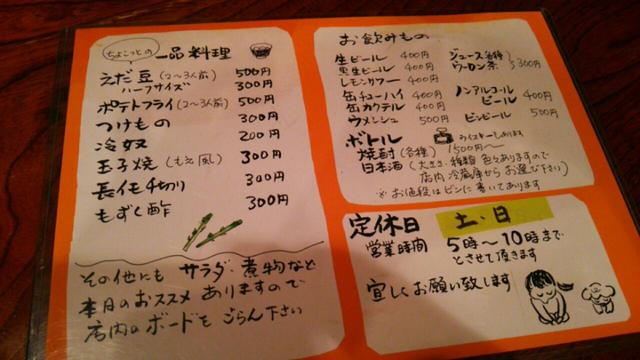 ちょこっとの 一品料理
えだ豆(2〜3人前) 500円
ハーフサイズ 300円
ポテトフライ(2〜3人前) 500円
つけもの 300円
冷奴 200円
玉子焼(もえ風) 300円
長イモ千切り 300円
もずく酢 300円
その他にも サラダ・煮物など
本日のおススメ ありますので
店内のボードも ごらん下さい
お飲みもの
生ビール 400円
黒生ビール 400円
レモンサワー 400円
缶チューハイ 400円
缶カクテル 400円
ウメッシュ 500円
ジュース各種
ウーロン茶 300円
ノンアルコール
ビール 400円
ビンビール 500円
ボトル
ウイスキーもあります
焼酎(各種) 1500円〜
日本酒(大きさ・種類 色々ありますので
店内 冷蔵庫からお選び下さい)
※お値段はビンに書いてあります
定休日 土・日
営業時間 5時〜10時まで
とさせて頂きます
宜しくお願い致します